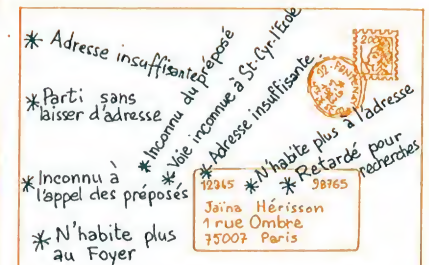 * Adresse insuffisante
* Parti sans
laisser d'adresse
* Inconnu à
l'appel des préposés
* N'habite plus
au Foyer
* Inconnu du préposé
* Voie inconnue à St-Cyr-l'Ecole
* Adresse insuffisante...
* N'habite plus à l'adresse
* Retardé pour
recherches
200
92-FONTENAY
12345 98765
Jaïna Hérisson
1 rue Ombre
75007 Paris